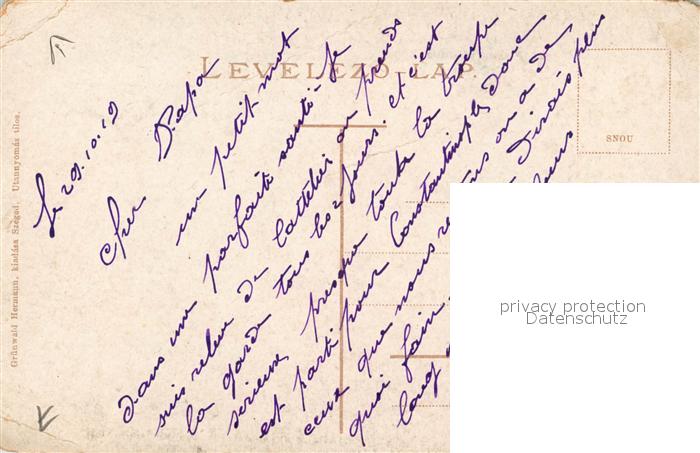 LEVELEZŐ-LAP.
SNOU
Grünwald Hermann, kiadása Szeged. Utánnyomás tilos.
le 29.10.19
Cher Papa
un petit mot
dans une parfaite santé. Je
suis relevé de l'attelier on prends
la garde tous les 2 jours. et c'est
sérieux presque toute la troupe
est parti pour Constantinople donc
ceux que nous on a de
quoi faire. dirais plus
long
privacy protection
Datenschutz